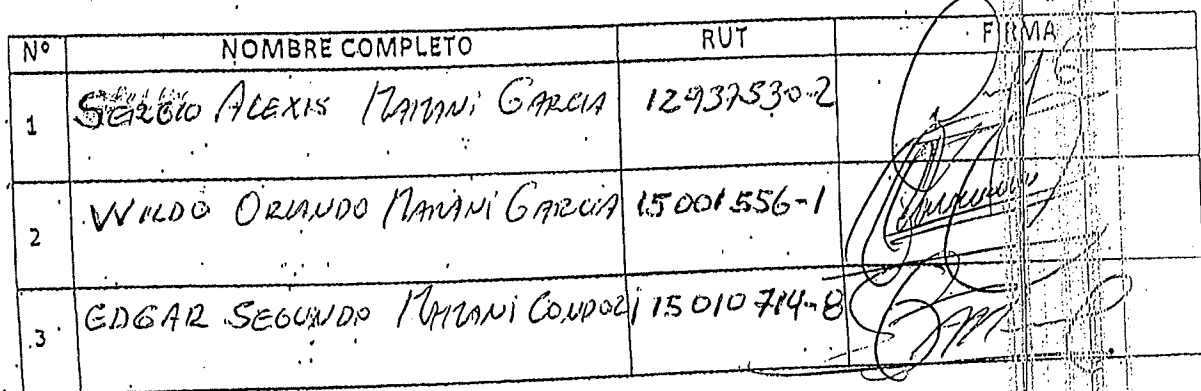 Nº NOMBRE COMPLETO RUT FIRMA
1 SERGIO ALEXIS MAMANI GARCIA 12937530-2
2 WILDO ORLANDO MAMANI GARCIA 15001556-1
3 EDGAR SEGUNDO MAMANI CONDORI 15010714-8